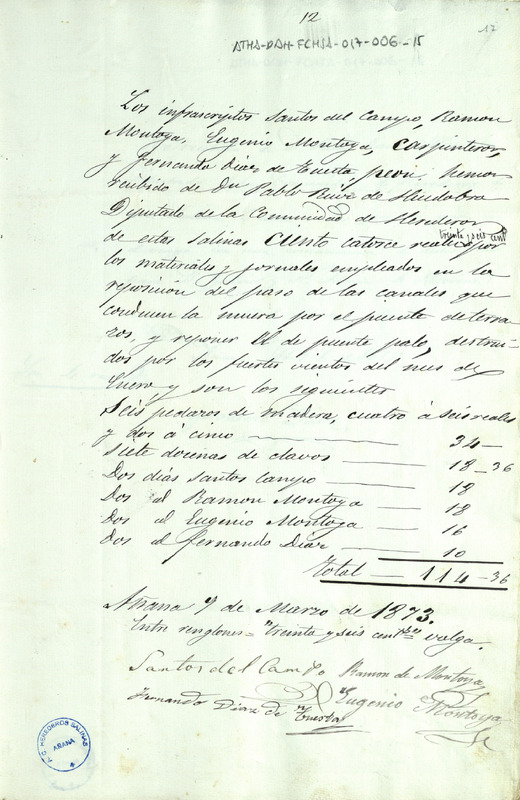 12
17
ATHA-DAH-FCHSA-017-006-15
Los infrascriptos Santos del Campo, Ramon
Montoya, Eugenio Montoya, carpinteros,
y Fernando Diaz de Tuesta, peon, hemos
recibido de Dn Pablo Ruiz de Huidobro
Diputado de la Comunidad de Herederos
treinta y seis cents
de estas Salinas ciento catorce reales por
los materiales y jornales empleados en la
reposicion del paso de las canales que
conducen la muera por el puente de terra
zos, y reponer el de puente palo, destrui
dos por los fuertes vientos del mes de
Enero y son los siguientes
Seis pedazos de madera, cuatro á seis reales
y dos á cinco 34
Siete docenas de clavos 18-36
Dos dias Santos Campo 18
Dos el Ramon Montoya 18
Dos el Eugenio Montoya 16
Dos el Fernando Diaz 10
Total 114-36
Añana 9 de Marzo de 1873.
Entre renglones = "treinta y seis cents valga.
Santos del Campo Ramon de Montoya
Fernando Diaz de Tuesta Eugenio Montoya
HEREDEROS SALINAS
AÑANA